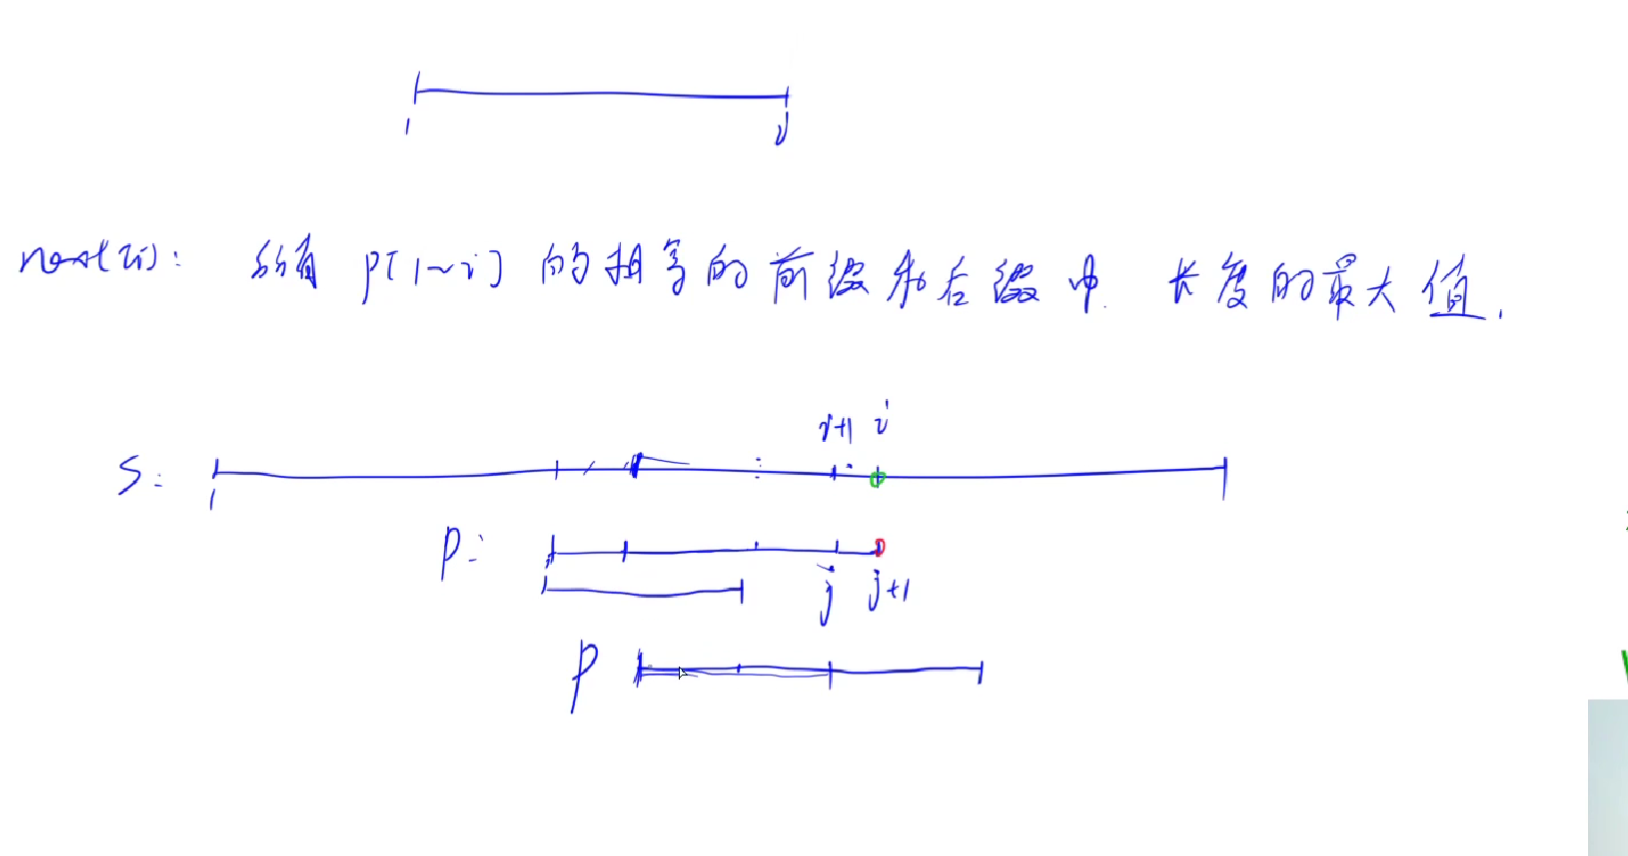 1 j
next[i]: 所有 p[1~i] 的相等的前缀和后缀中 长度的最大值.
i+1 i
S: 1
p:
j j+1
p